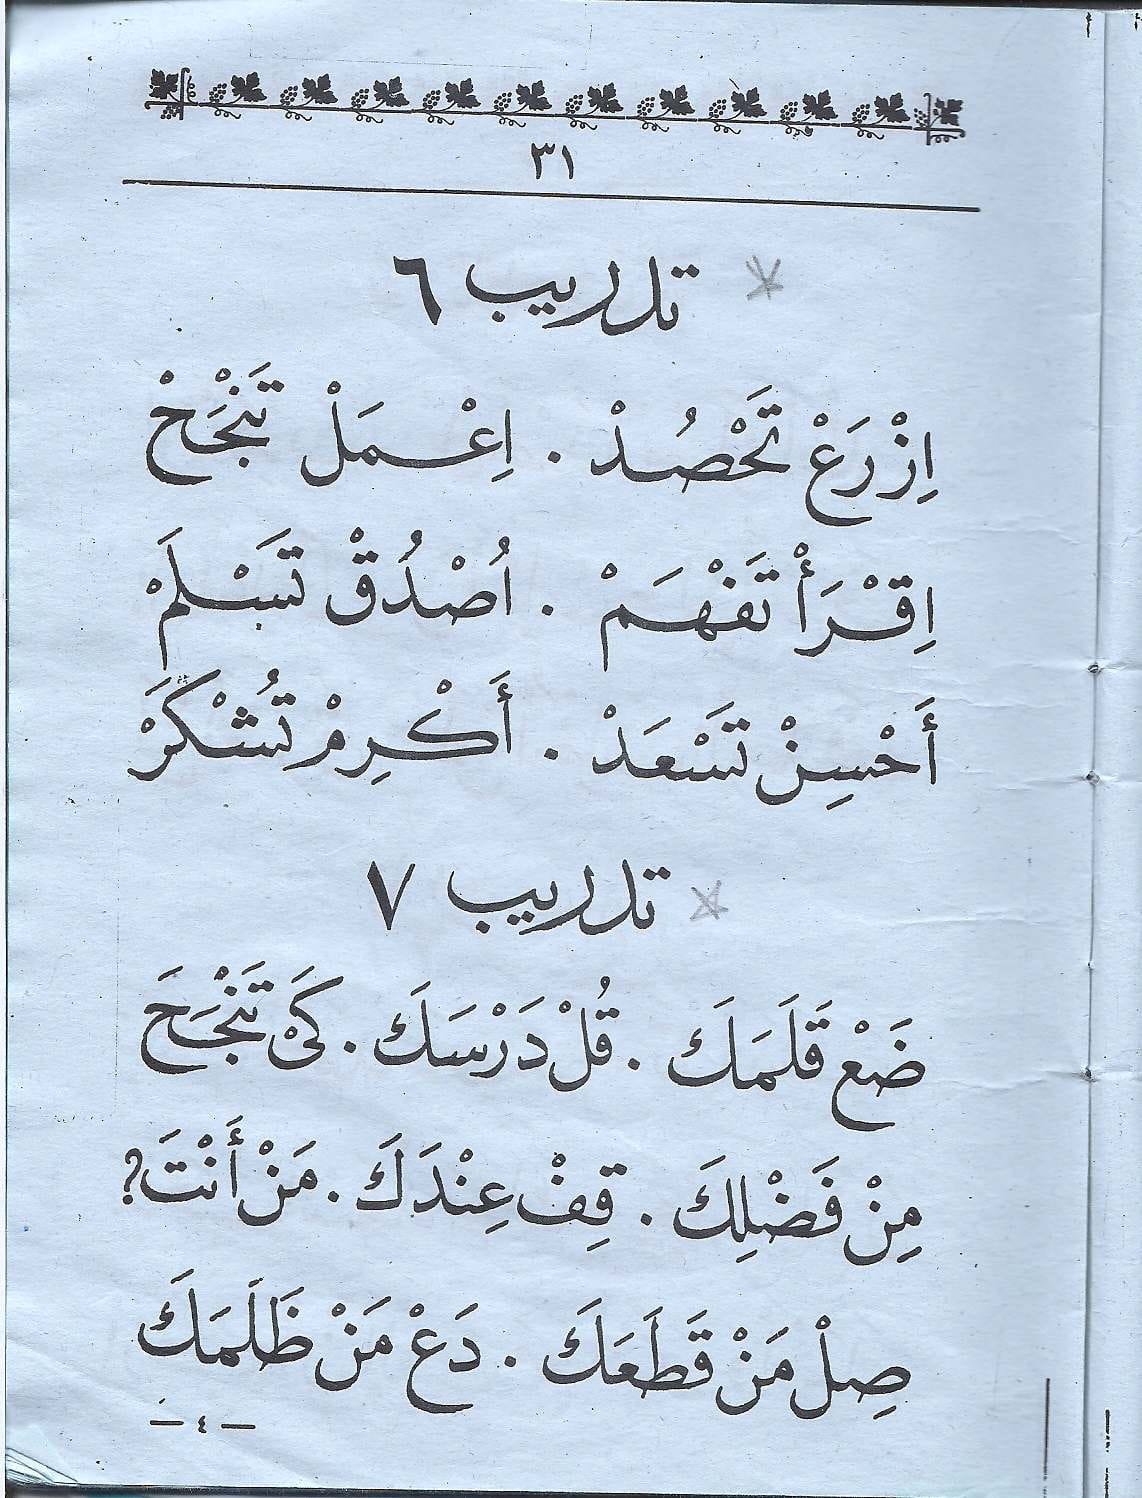 ٣١
تدريب ٦
اِزْرَعْ تَحْصُدْ . اِعْمَلْ تَنْجَحْ
اِقْرَأْ تَفْهَمْ . اُصْدُقْ تَسْلَمْ
أَحْسِنْ تَسْعَدْ . أَكْرِمْ تُشْكَرْ
تدريب ٧
ضَعْ قَلَمَكَ . قُلْ دَرْسَكَ . كَىْ تَنْجَحَ
مِنْ فَضْلِكَ . قِفْ عِنْدَكَ . مَنْ أَنْتَ?
صِلْ مَنْ قَطَعَكَ . دَعْ مَنْ ظَلَمَكَ
— ٤ —